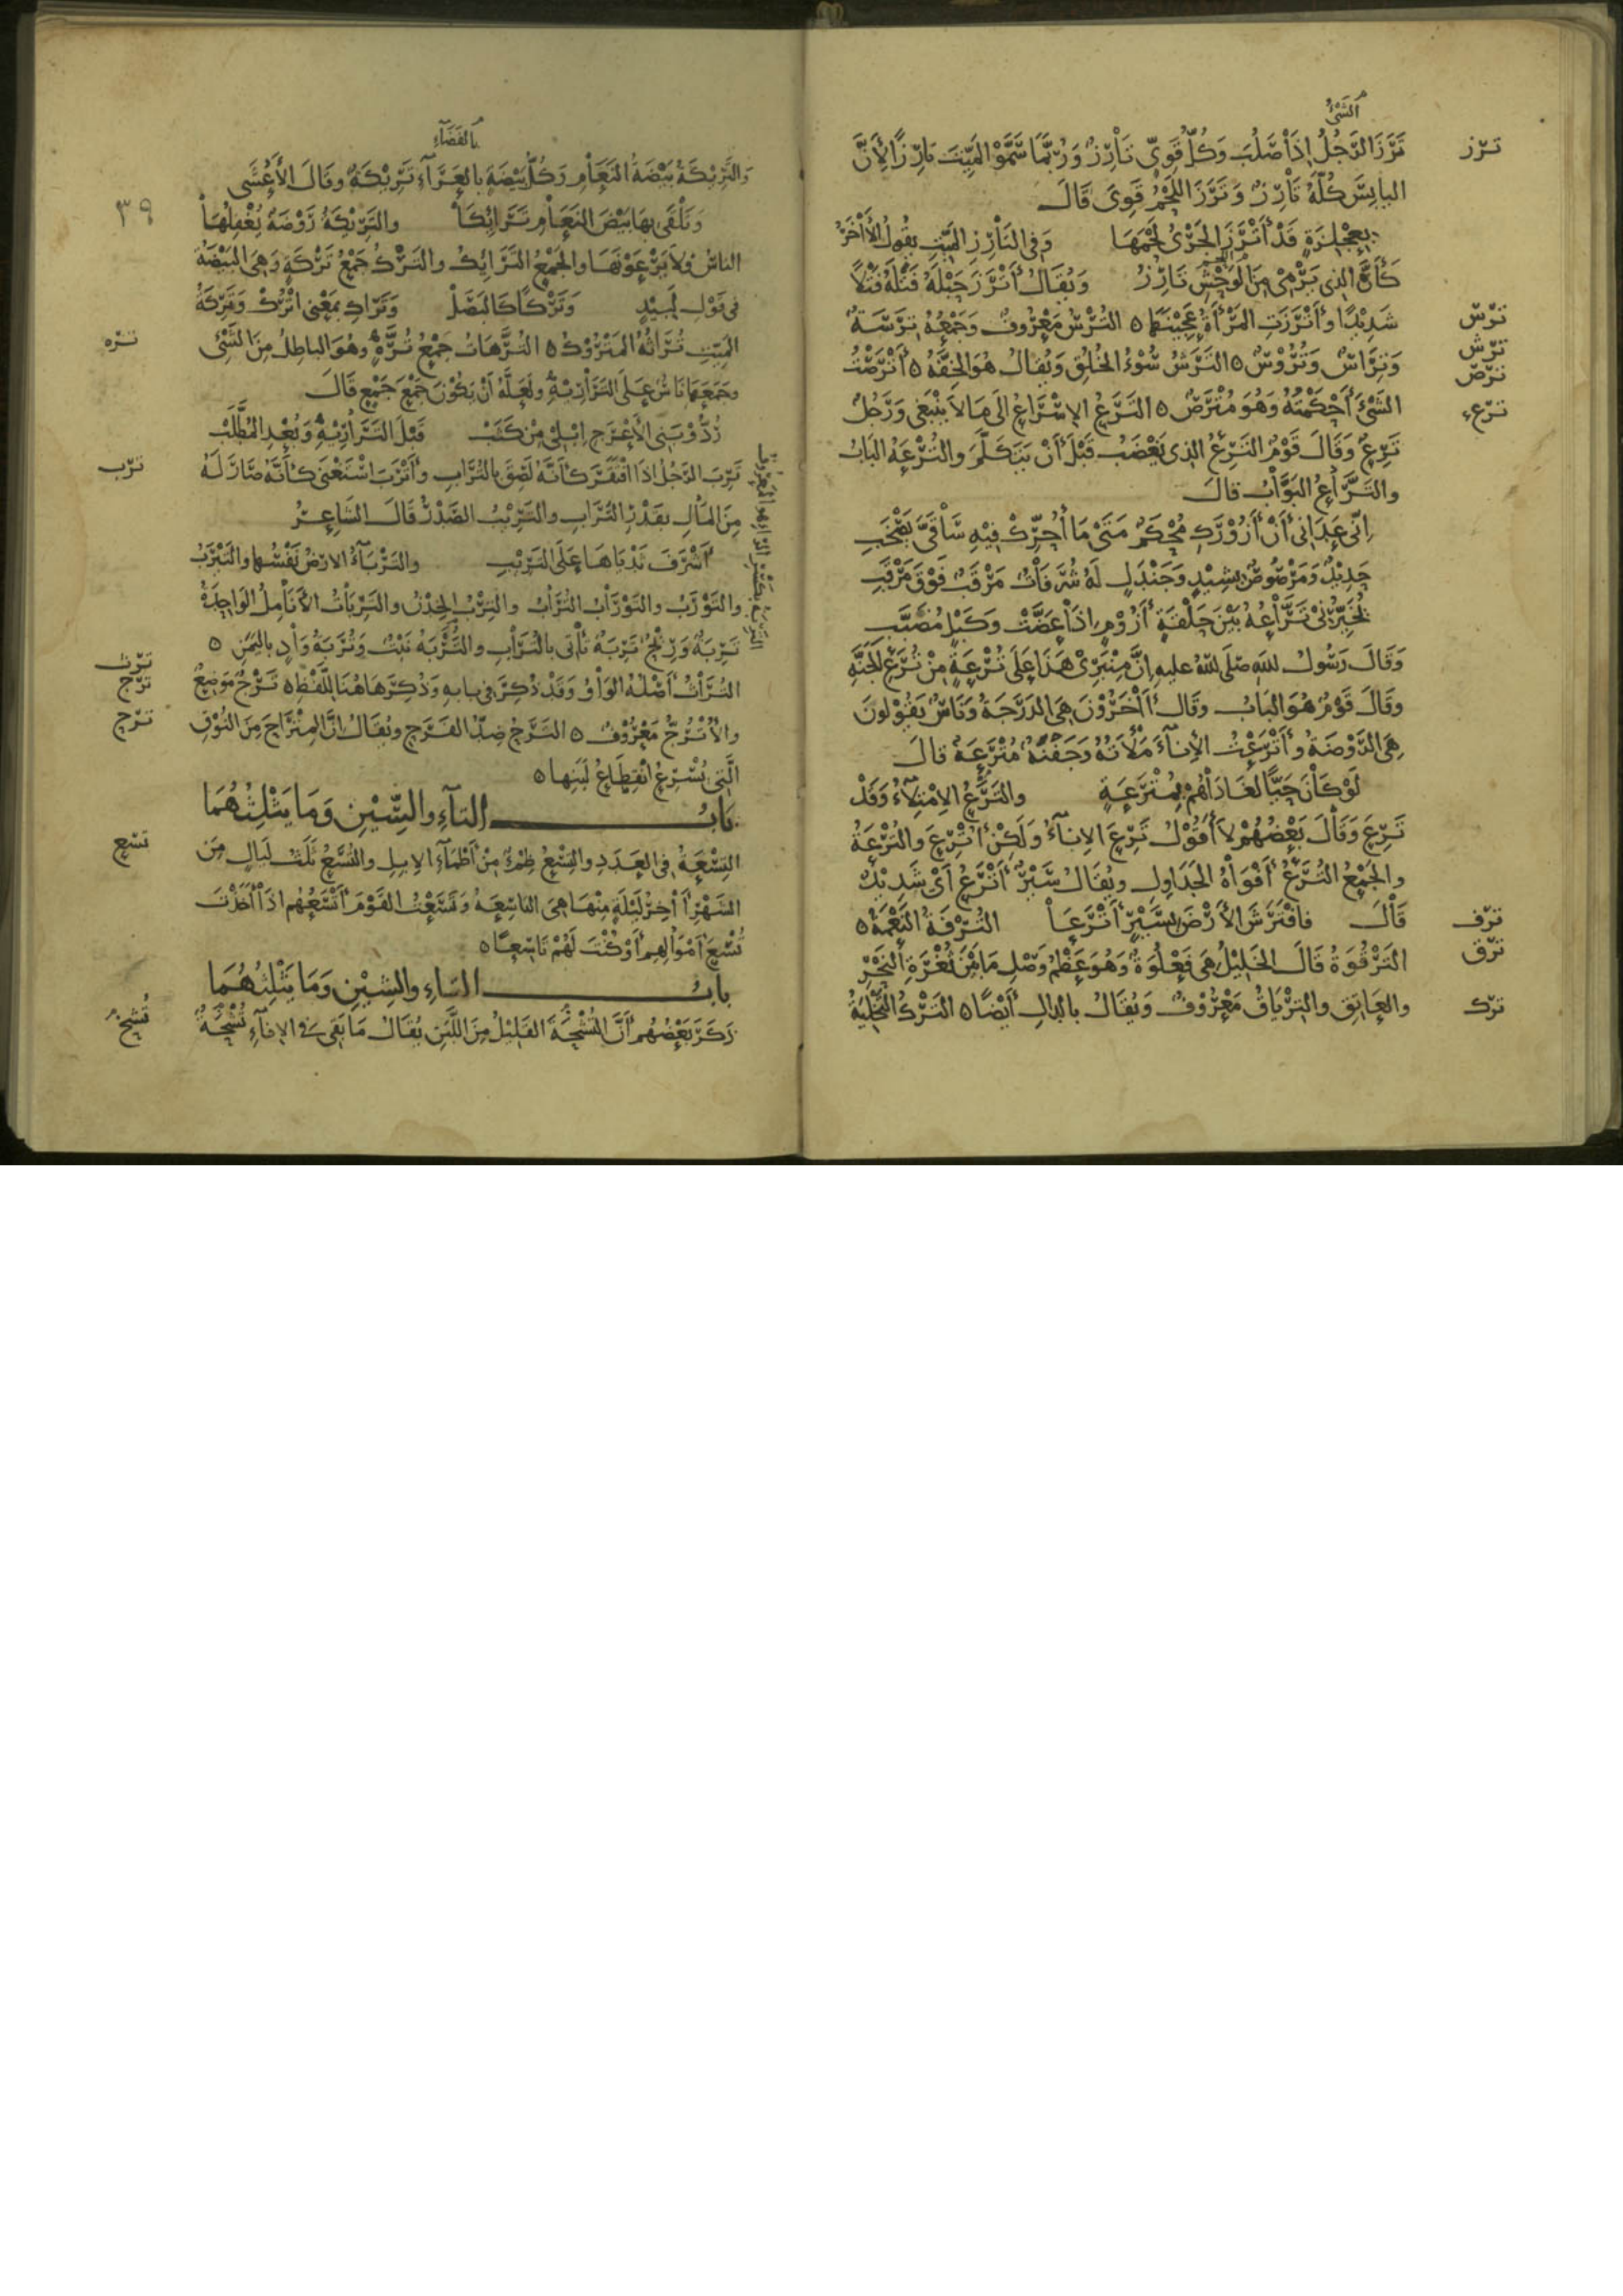 الشَّىْءُ
ترز
تَرَزَ الرَّجُلُ إِذَا صَلُبَ وَكُلُّ قَوِيٍّ تَارِزٌ وَرُبَّمَا سَمَّوُا الْمَيِّتَ تَارِزًا لِأَنَّ
اليابِسَ كُلَّهُ تَارِزٌ وَتَرَزَ اللَّحْمُ قَوِىَ قَالَ
بِعِجْلِزَةٍ قَدْ أَتْرَزَ الجَرْىُ لَحْمَهَا وَفِى التَّارِزِ المَيِّتِ يقُولُ الآخَرُ
كَأَنَّ الذى يَرْمِى مِنَ الوَحْشِ تَارِزُ وَيُقَالُ أَتْرَزَ حَبْلَهُ فَتَلَهُ فَتْلًا
ترس
شَدِيْدًا وأَتْرَزَتِ المَرْأَةُ عَجِيْنَهَا ه التُّرْسُ مَعْرُوفٌ وَجَمْعُهُ تِرَسَةٌ
ترش
وَتِرَاسٌ وَتُرُوْسٌ ه التَّرَشُ سُوْءُ الخُلُقِ وَيُقَالُ هُوَ الخِفَّةُ ه أَتْرَصْتُ
ترص
ترع
الشَّىْءَ أَحْكَمْتُهُ وَهُوَ مُتْرَصٌ ه التَّرَعُ الإِسْرَاعُ إِلَى مَا لَا يَنْبَغِى وَرَجُلٌ
تَرِعٌ وَقَالَ قَوْمٌ التَّرِعُ الذِى يَغْضَبُ قَبْلَ أَنْ يَتَكَلَّمَ والتُّرْعَةُ البَابُ
والتَّرَّاعُ البَوَّابُ قالَ
إِنِّى عَدَانِى أَنْ أَزُوْرَكِ مُحْكَمٌ مَتَى مَا أُحَرِّكْ فِيْهِ سَاقَىَّ يَصْخَبِ
حَدِيْدٌ وَمَرْصُوصٌ بِشِيْدٍ وَجَنْدَلٍ لَهُ شُرُفَاتٌ مَرْقَبٌ فَوْقَ مَرْقَبِ
يُخَبِّرُنِى تَرَّاعُهُ بَيْنَ حَلْقَةٍ أَزُوْمٍ إِذَا عَضَّتْ وَكَبْلٍ مُضَبَّبِ
وَقَالَ رَسُولُ اللهِ صَلَّى اللهُ عليهِ إِنَّ مِنْبَرِىْ هَذَا عَلَى تُرْعَةٍ مِنْ تُرَعِ الجَنَّةِ
وَقَالَ قَوْمٌ هُوَ البَابُ وَقَالَ آخَرُوْنَ هِىَ الدَّرَجَةُ وَنَاسٌ يَقُوْلونَ
هِىَ الرَّوْضَةُ وأَتْرَعْتُ الإِنَآءَ مَلَأتُهُ وَجَفْنَةٌ مُتْرَعَةٌ قالَ
لَوْ كَانَ حَيًّا لَغَادَاهُمْ بِمُتْرَعَةٍ والتَّرَعُ الاِمْتِلَآءُ وَقَدْ
تَرِعَ وَقَالَ بَعْضُهُمْ لَا أَقُوْلُ تَرِعَ الإِنَآءُ وَلَكِنْ أُتْرِعَ والتُّرْعَةُ
والجَمْعُ التُّرَعُ أَفْوَاهُ الجَدَاوِلِ ويُقَالُ سَيْرٌ أَتْرَعُ أَىْ شَدِيْدٌ
ترف
قَالَ فافْتَرَشَ الأَرْضَ بِسَيْرٍ أَتْرَعَا التُّرْفَةُ النِّعْمَةُ ه
ترق
التَرْقُوَةُ قَالَ الخَلِيْلُ هِىَ فَعْلُوَةٌ وَهُوَ عَظْمٌ وَصَلَ مَا بَيْنَ ثُغْرَةِ النَّحْرِ
ترك
والعَاتِقِ والتِرْيَاقُ مَعْرُوْفٌ وَيُقَالُ بالدالِ أَيْضًا ه التَّرْكُ التَّخْلِيَةُ
بالفَضَآءِ
والتَّرِيْكَةُ بَيْضَةُ النَّعَامِ وَكُلُّ بَيْضَةٍ بالعَرَآءِ تَرِيْكَةٌ وقَالَ الأَعْشَى
٣٩
وَتَلْقَى بِهَا بَيْضَ النَّعَامِ تَرَائِكَا والتَّرِيْكَةُ رَوْضَةٌ يُغْفِلُهَا
الناسُ وَلَا يَرْعَوْنَهَا والجَمْعُ التَّرَائِكُ والتَّرْكُ جَمْعُ تَرْكَةٍ وَهِىَ البَيْضَةُ
فِى قَوْلِ لَبِيْدٍ وَتَرْكًا كَالبَصَلْ وَتَرَاكِ بِمَعْنَى اتْرُكْ وَتَرِكَةُ
تره
المَيِّتِ تُرَاثُهُ المَتْرُوْكُ ه التُّرَّهَاتُ جَمْعُ تُرَّهَةٍ وهُوَ الباطِلُ مِنَ الشَّىْءِ
وجَمَعَهَا نَاسٌ عَلَى التَّرَارِيْهِ ولَعَلَّهُ أَنْ يَكُوْنَ جَمْعَ جَمْعٍ قَالَ
رُدُّوْ بَنِى الأَعْرَجِ إِبْلِىْ مِنْ كَثَبْ قَبْلَ التَّرَارِيْهِ وَبُعْدِ المُطَّلَبْ
ترب
تَرِبَ الرَّجُلُ إِذَا افْتَقَرَ كَأَنَّهُ لَصِقَ بالتُّرَابِ وأَتْرَبَ اسْتَغْنَى كأَنَّهُ صَارَ لَهُ
مِنَ المَالِ بِقَدْرِ التُّرَابِ والتَّرِيْبُ الصَّدْرُ قَالَ الشَاعِرُ
أَشْرَفَ ثَدْيَاهَا عَلَى التَّرِيْبِ والتَّرْبَآءُ الأَرْضُ نَفْسُهَا والتَيْرَبُ
والتَّوْرَبُ والتَّوْرَابُ التُّرَابُ والتِّرْبُ الخِدْنُ والتَّرِبَاتُ الأَنَامِلُ الوَاحِدَةُ
تَرِبَةٌ وَرِيْحٌ تَرِبَةٌ تَأْتِى بالتُّرَابِ والتَّرِبَةُ نَبْتٌ وَتُرَبَةُ وَادٍ بِاليَمَنِ ه
ترث
ترج
التُّرَاثُ أَصْلُهُ الوَاوُ وَقَدْ ذُكِرَ فِى بَابِهِ وَذُكِرَ هَاهُنَا لِلَّفْظِ ه تَرْجُ مَوْضِعٌ
ترح
والأُتْرُجُّ مَعْرُوْفٌ ه التَّرَحُ ضِدُّ الفَرَحِ ويُقَالُ إِنَّ المِتْرَاحَ مِنَ النُّوْقِ
الَّتِى يُسْرِعُ انْقِطَاعُ لَبَنِهَا ه
بَابُ التآءِ والسِّيْنِ وَمَا يَثْلِثُهُمَا
تسع
التِّسْعَةُ فِى العَدَدِ والتِّسْعُ ظِمْءٌ مِنْ أَظْمَآءِ الإِبِلِ والتُّسَعُ ثَلَثُ لَيَالٍ مِنَ
الشَّهْرِ آخِرُ لَيْلَةٍ مِنْهَا هِىَ التاسِعَةُ وَتَسَعْتُ القَوْمَ أَتْسَعُهُم إِذَا أَخَذْتَ
تُسْعَ أَمْوَالِهِم أَوْ كُنْتَ لَهُمْ تَاسِعًا ه
بابُ التاءِ والشِيْنِ وَمَا يَثْلِثُهُمَا
تشح
ذَكَرَ بَعْضُهُم أَنَّ التُّشْحَةَ القَلِيْلُ مِنَ اللَّبَنِ يُقَالُ مَا بَقِىَ فى الإِنَآءِ تُشْحَةٌ